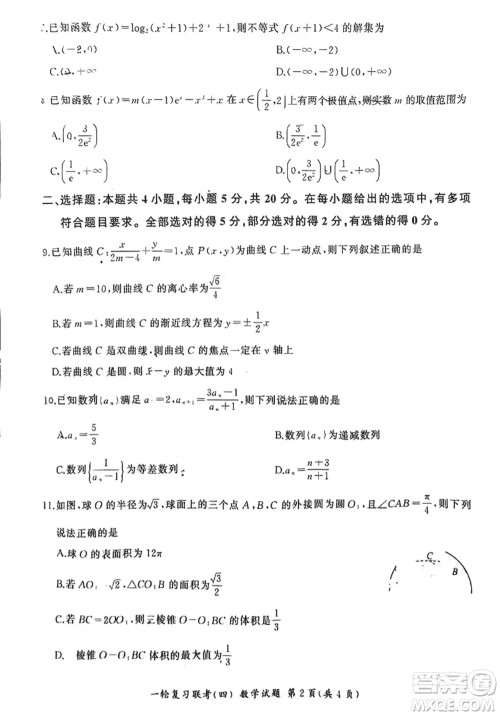 已知函数 f(x)=log₂(x²+1)+2ˣ+1,则不等式 f(x+1)<4 的解集为
A.(-2,0) B.(-∞,0)
C.(0,+∞) D.(-∞,-2)∪(0,+∞)
已知函数 f(x)=m(x-1)eˣ-x²+x,在 x∈(1/2,2] 上有两个极值点,则实数 m 的取值范围为
A.(0,3/(2e²)) B.(3/(2e²),+∞)
C.(3/e²,+∞) D.(0,3/e²)
二、选择题:本题共 4 小题,每小题 5 分,共 20 分。在每小题给出的选项中,有多项
符合题目要求。全部选对的得 5 分,部分选对的得 2 分,有选错的得 0 分。
9.已知曲线 C:x/(2m-4)+y/m=1,点 P(x,y)为曲线 C 上一点,则下列叙述正确的是
A.若 m=10,则曲线 C 的离心率为 √6/4
B.若 m=1,则曲线 C 的渐近线方程为 y=±1/2x
C.若曲线 C 是双曲线,则曲线 C 的焦点一定在 y 轴上
D.若曲线 C 是圆,则 x-y 的最大值为 4
10.已知数列{aₙ}满足 a=2,aₙ₊₁=(3aₙ-1)/(aₙ+1),则下列说法正确的是
A.a₃=5/3 B.数列{aₙ}为递减数列
C.数列{1/(aₙ-1)}为等差数列 D.aₙ=(n+3)/(n+1)
11.如图,球 O 的半径为√3,球面上的三个点 A,B,C 的外接圆为圆 O₁,且∠CAB=π/4,则下列
说法正确的是
A.球 O 的表面积为 12π
B.若 AO₁=√2,△CO₁B 的面积为 1/3
C.若 BC=2OO₁,三棱锥 O-O₁BC 的体积为 1/3
D. 棱锥 O-O₁BC 体积的最大值为 1/3
C
B
一轮复习联考(四) 数学试题 第 2 页(共 4 页)